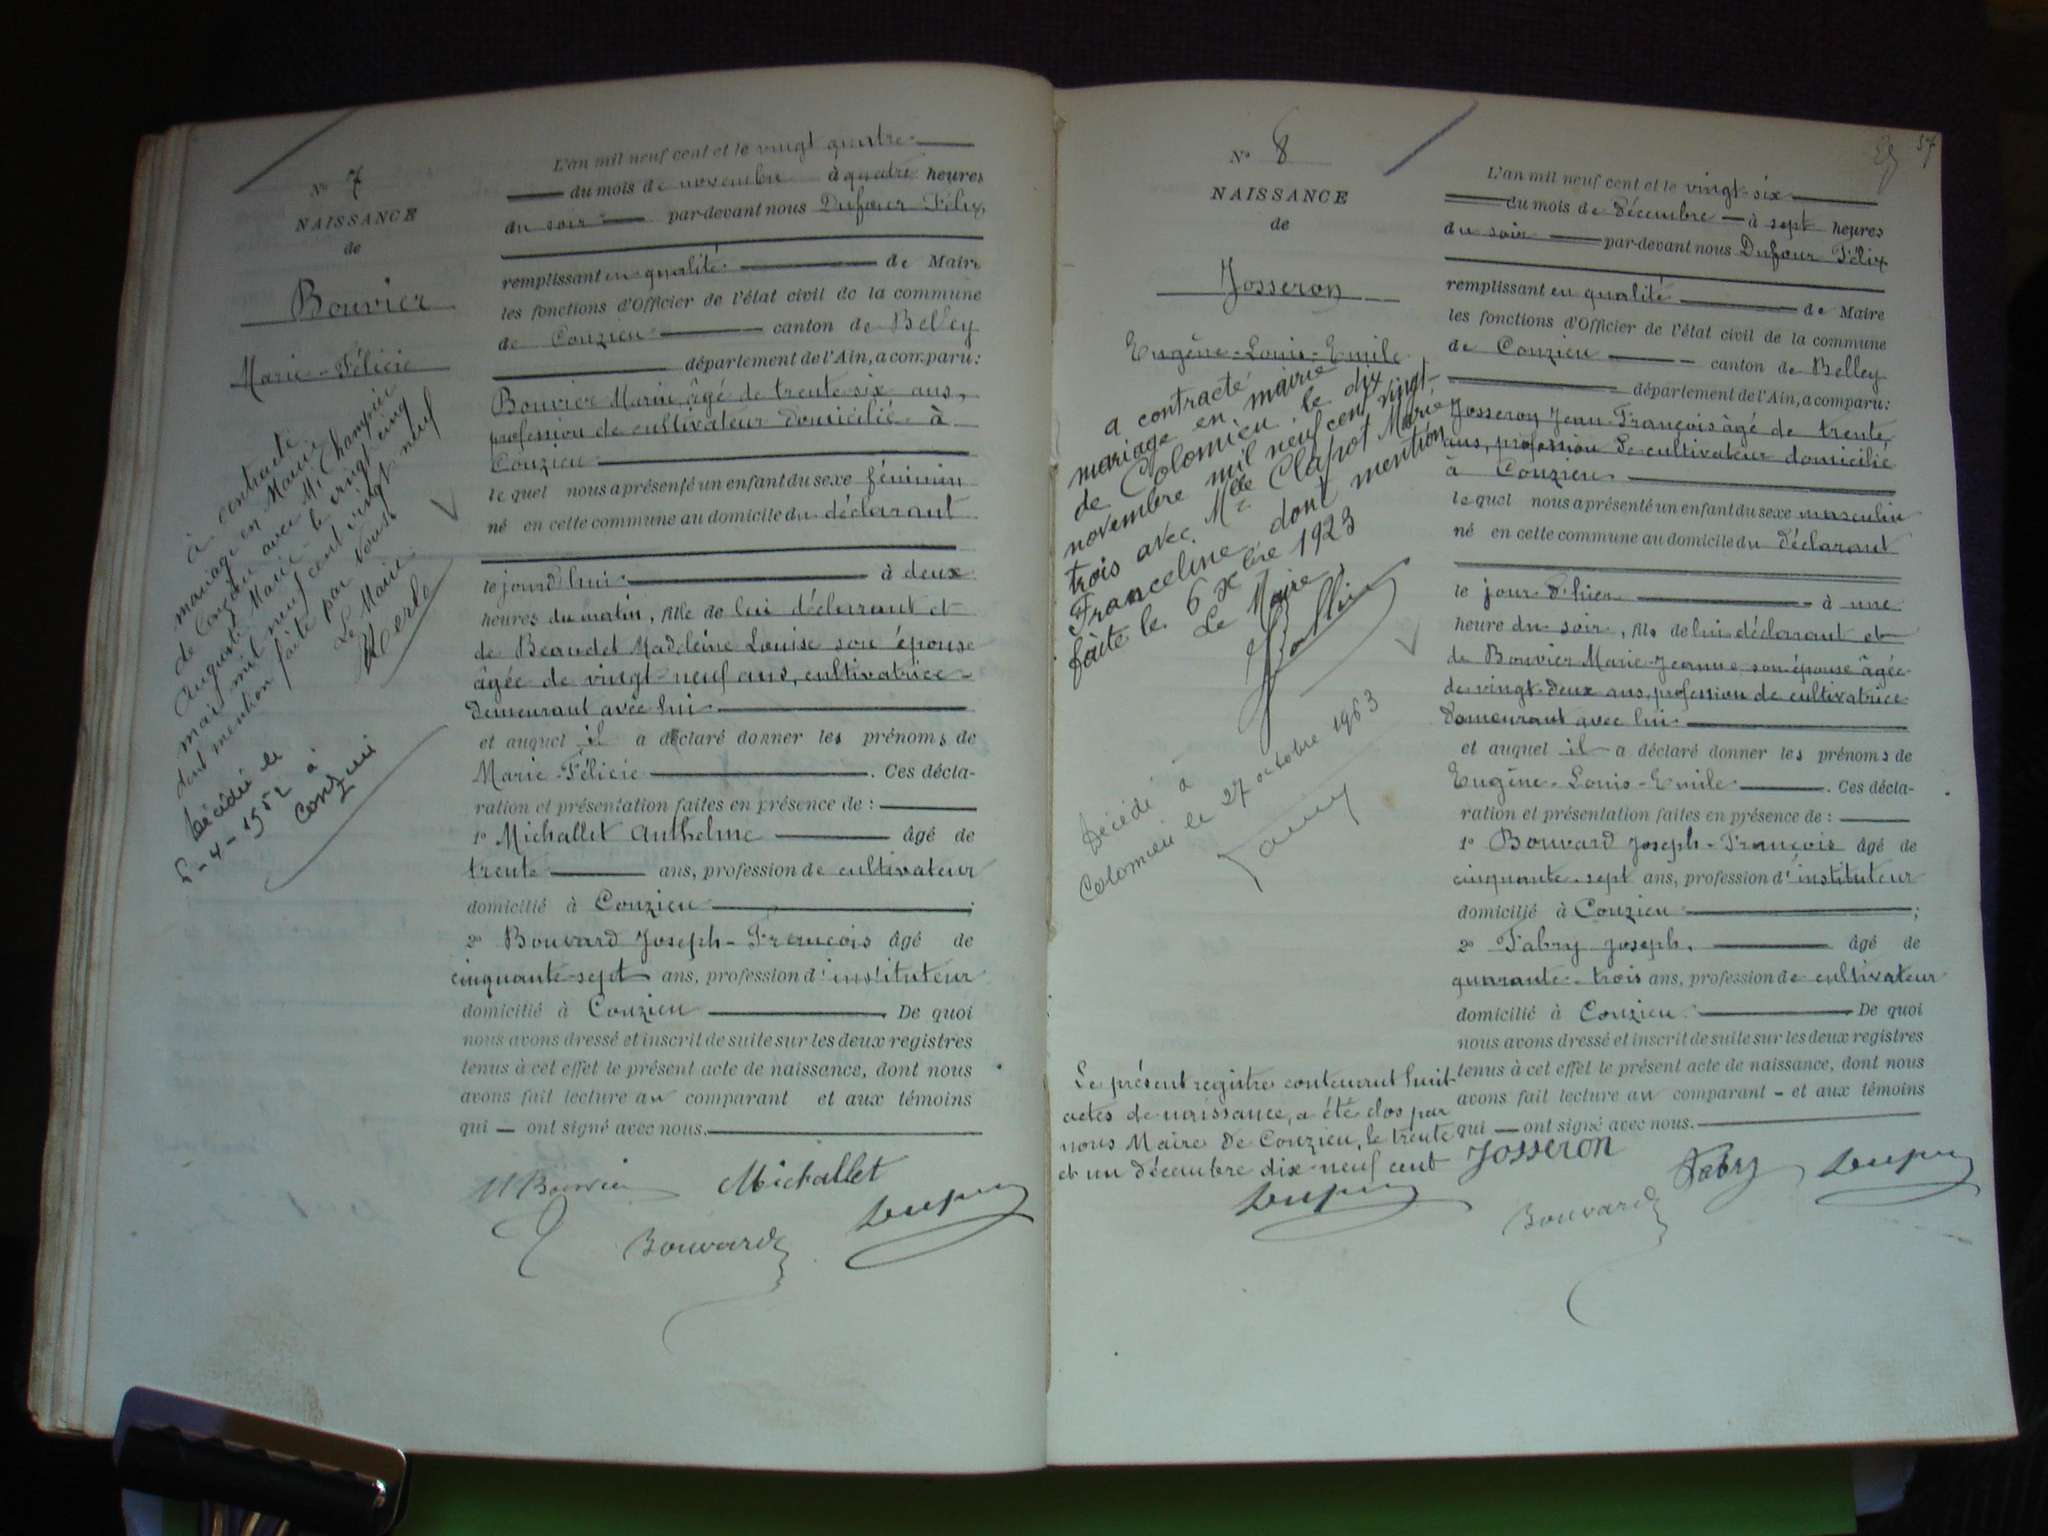 N° 7
NAISSANCE
de
Bouvier
Marie-Félicie
à contracté
mariage en Mairie
de Conzieu avec Mr Champier
Auguste Marie le vingt cinq
mai mil neuf cent vingt neuf
dont mention faite par nous
Le Maire
Décédée le
-4-1952 à
Conzieu
L'an mil neuf cent et le vingt quatre
du mois de novembre à quatre heures
du soir par-devant nous Dufour Félix,
remplissant en qualité de Maire
les fonctions d'Officier de l'état civil de la commune
de Conzieu canton de Belley
département de l'Ain, a comparu:
Bouvier Marin âgé de trente six ans,
profession de cultivateur domicilié à
Conzieu
le quel nous a présenté un enfant du sexe féminin
né en cette commune au domicile du déclarant
le jourd'hui à deux
heures du matin, fille de lui déclarant et
de Beaudet Madeleine Louise son épouse
âgée de vingt-neuf ans, cultivatrice
demeurant avec lui
et auquel il a déclaré donner les prénoms de
Marie-Félicie . Ces décla-
ration et présentation faites en présence de :
1° Michallet Anthelme âgé de
trente ans, profession de cultivateur
domicilié à Conzieu ;
2° Bouvard Joseph-François âgé de
cinquante-sept ans, profession d'instituteur
domicilié à Conzieu . De quoi
nous avons dressé et inscrit de suite sur les deux registres
tenus à cet effet le présent acte de naissance, dont nous
avons fait lecture au comparant et aux témoins
qui — ont signé avec nous.
M Bouvier Michallet
Bouvard
57
N° 8
NAISSANCE
de
Josseron
Eugène-Louis-Emile
a contracté
mariage en mairie
de Colomieu le dix
novembre mil neuf cent vingt-
trois avec Mlle Clapot Marie
Franceline dont mention
faite le 6 Xbre 1923
Le Maire,
Décédé à
Colomieu le 27 octobre 1963
Le présent registre contenant huit
actes de naissance, a été clos par
nous Maire de Conzieu, le trente
et un décembre dix-neuf cent
L'an mil neuf cent et le vingt-six
du mois de décembre à sept heures
du soir par-devant nous Dufour Félix
remplissant en qualité de Maire
les fonctions d'Officier de l'état civil de la commune
de Conzieu canton de Belley
département de l'Ain, a comparu:
Josseron Jean-François âgé de trente
ans, profession de cultivateur domicilié
à Conzieu
le quel nous a présenté un enfant du sexe masculin
né en cette commune au domicile du déclarant
le jour d'hier à une
heure du soir, fils de lui déclarant et
de Bouvier Marie-Jeanne son épouse âgée
de vingt-deux ans, profession de cultivatrice
demeurant avec lui.
et auquel il a déclaré donner les prénoms de
Eugène-Louis-Emile . Ces décla-
ration et présentation faites en présence de :
1° Bouvard Joseph-François âgé de
cinquante-sept ans, profession d'instituteur
domicilié à Conzieu ;
2° Fabry Joseph, âgé de
quarante-trois ans, profession de cultivateur
domicilié à Conzieu . De quoi
nous avons dressé et inscrit de suite sur les deux registres
tenus à cet effet le présent acte de naissance, dont nous
avons fait lecture au comparant - et aux témoins
qui — ont signé avec nous.
Josseron
Fabry
Bouvard